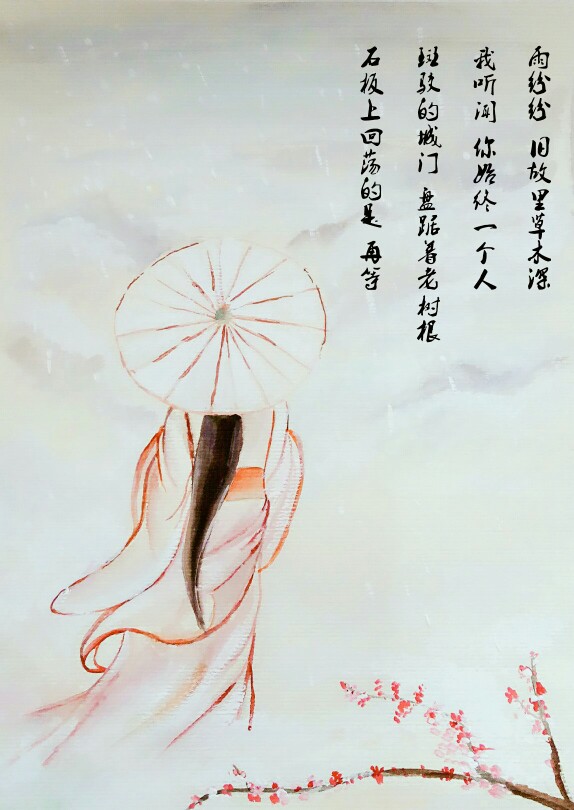 雨纷纷 旧故里草木深
我听闻 你始终一个人
斑驳的城门 盘踞着老树根
石板上回荡的是 再等